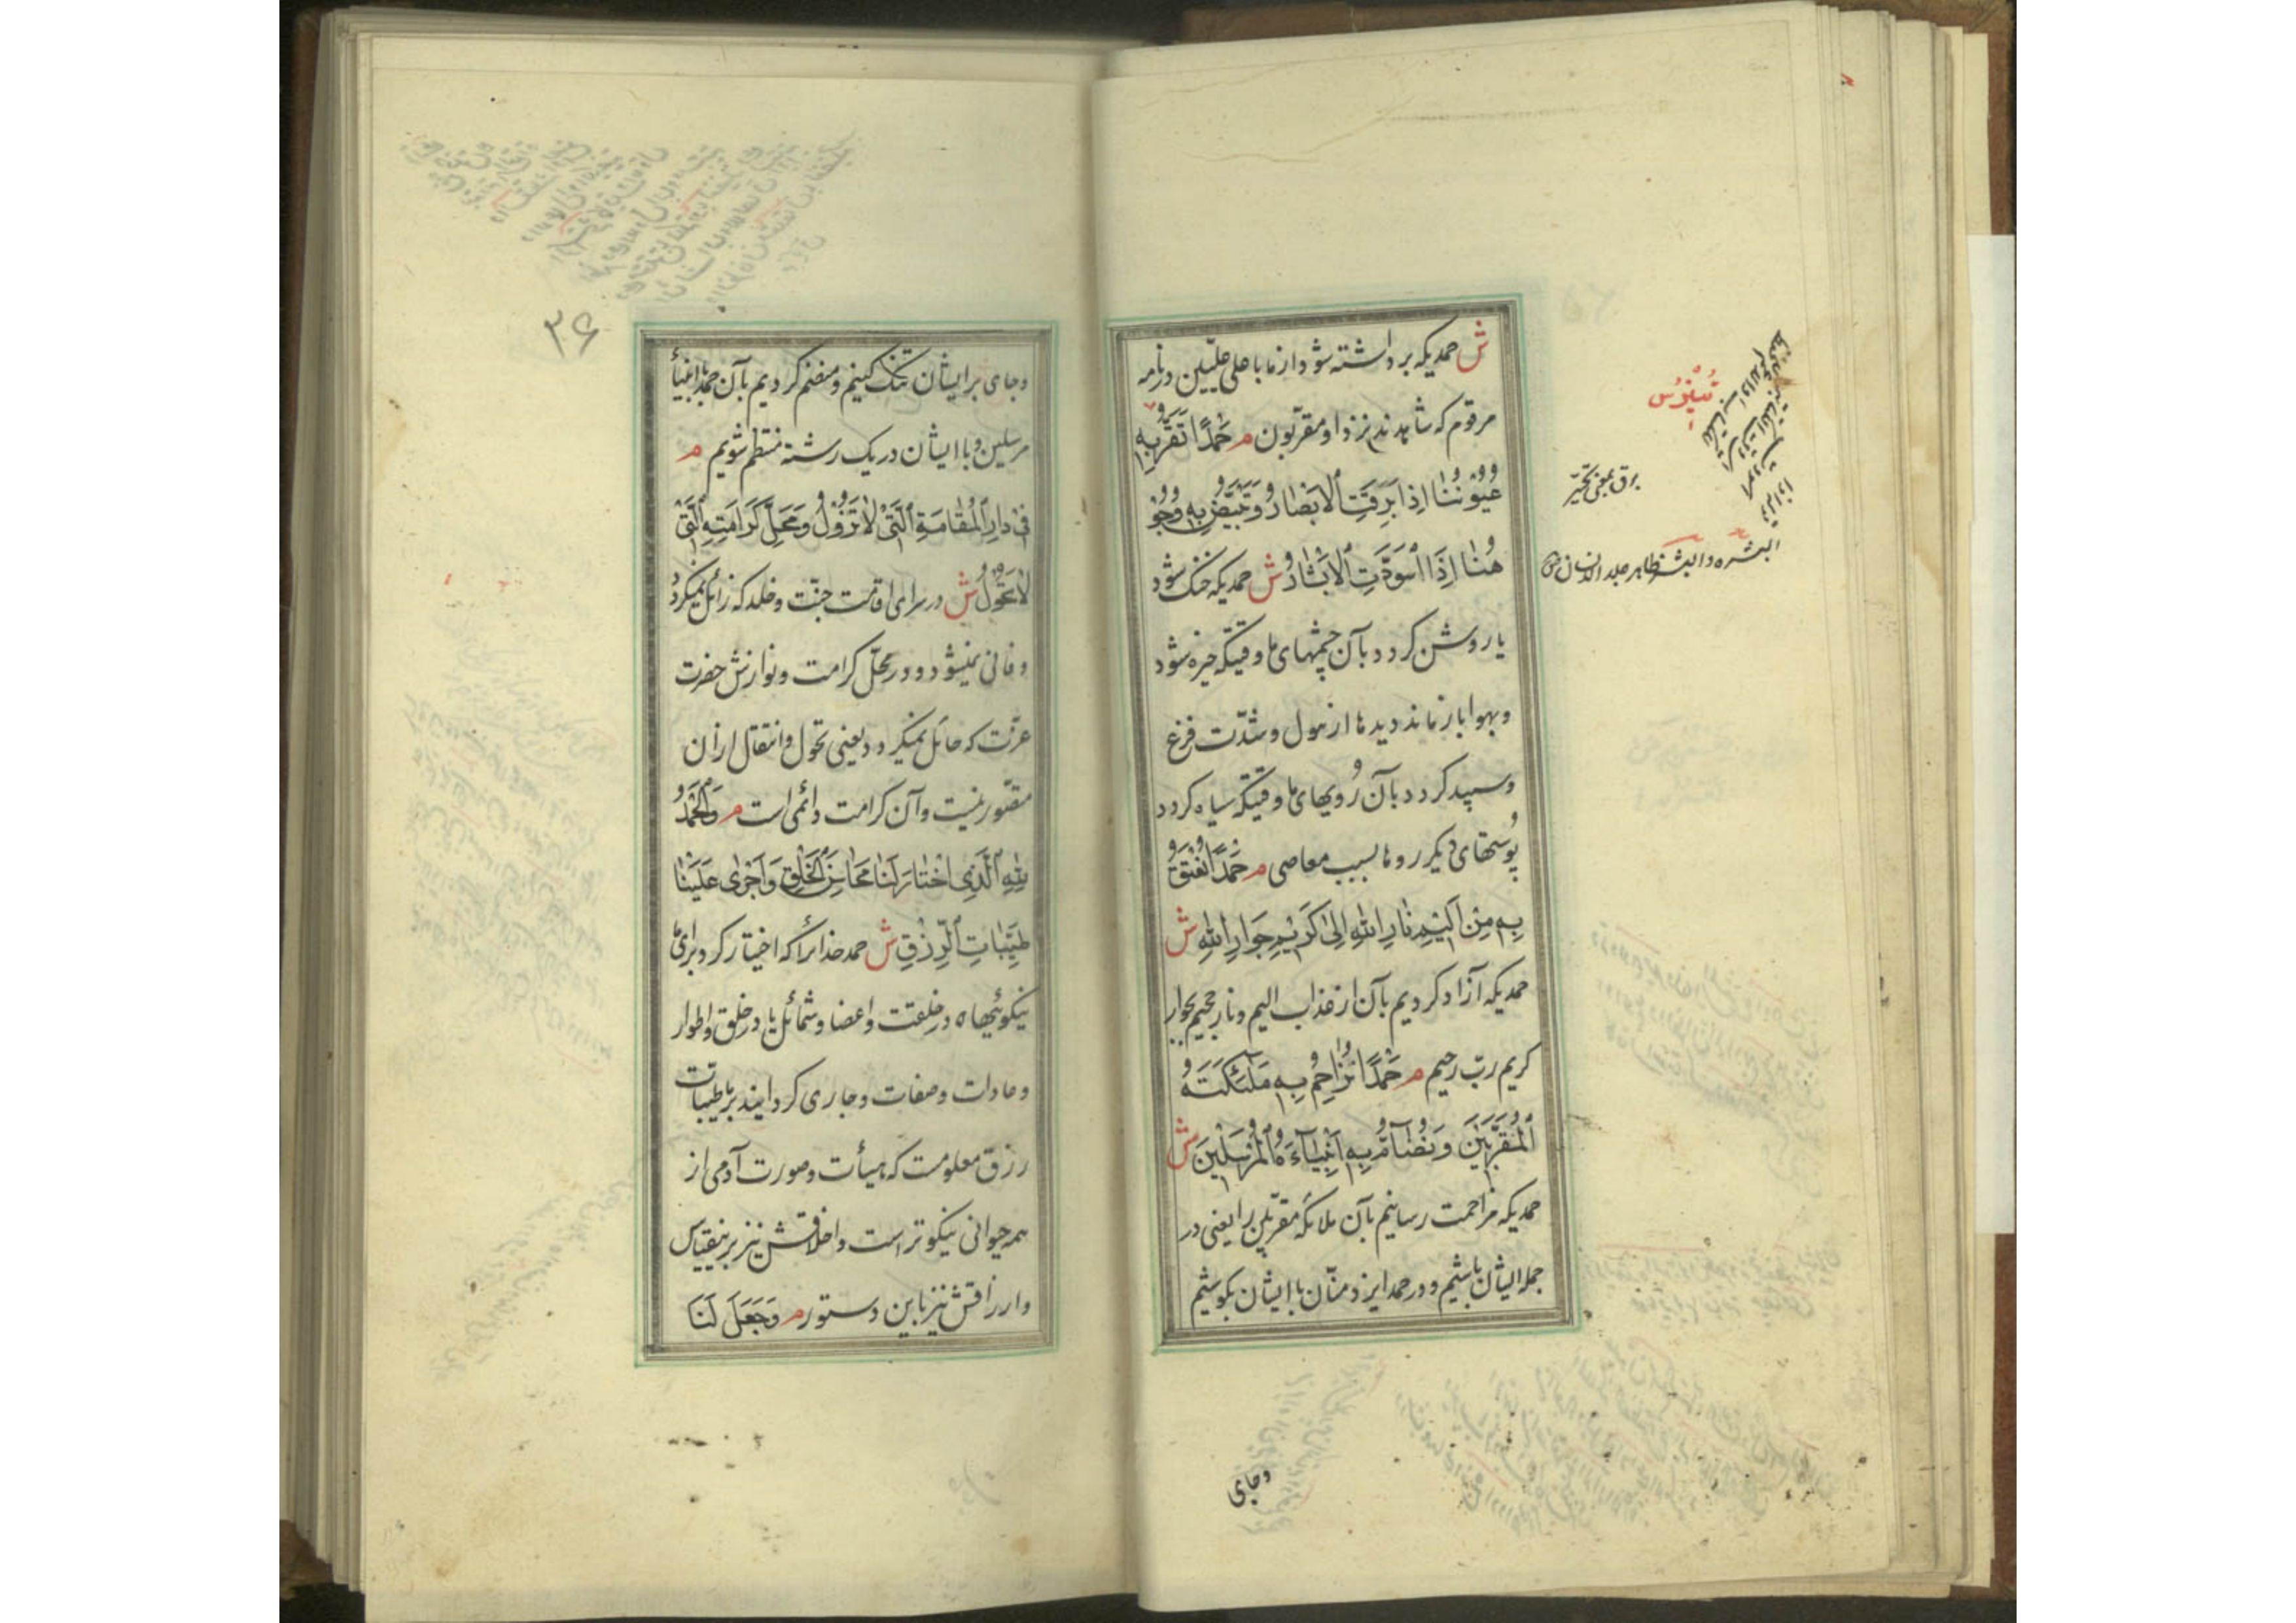 ش حمدیکه برداشته شود از ما باعلی علیین در نامه
مرقوم که شاهدند نزد او مقربون م حَمْدًا تَقَرُّ بِهِ
عُیُوْنُنٰا اِذٰا بَرِقَتِ ٱلْاَبْصٰارُ وَتَبْیَضُّ بِهِ وُجُوْ
هُنٰا اِذَا ٱسْوَدَّتِ ٱلْاَبْشٰارُ ش حمدیکه خنک شود
یا روشن کردد بآن چشمهای ما وقتیکه خیره شود
وبهوا باز ماند دیدها از هول و شدّت فزع
وسپید کردد بآن رُویهای ما وقتیکه سیاه کردد
پوستهای دیکر روها بسبب معاصی م حَمْدًا نُعْتَقُ
بِهِ مِنْ اَلِیْمِ نٰارِ اللهِ اِلیٰ کَرِیْمِ جِوَارِ اللهِ ش
حمدیکه آزاد کردیم بآن از عذاب الیم و نار جحیم بجوار
کریم ربّ رحیم م حَمْدًا نُزٰاحِمُ بِهِ مَلٰٓئِکَتَهُ
ٱلْمُقَرَّبِیْنَ وَنُضٰٓامُّ بِهِ اَنْبِیٰٓاءَهُ ٱلْمُرْسَلِیْنَ ش
حمدیکه مزاحمت رسانیم بآن ملائکه مقربین را یعنی در
جمله ایشان باشیم و در حمد ایزد منّان با ایشان بکوشیم
وجای
برق بمعنی تحیّر
البشره والبشر ظاهر جلد الانسان
۳۶
وجای بر ایشان تنک کنیم و منضم کردیم بآن حمد با انبیأ
مرسلین و با ایشان در یک رشته منتظم شویم م
فِیْ دٰارِ ٱلْمُقٰامَةِ ٱلَّتِیْ لاٰ تَزُوْلُ وَمَحَلِّ کَرَامَتِهِ ٱلَّتِیْ
لاٰ تَحُوْلُ ش در سرای اقامت جنّت و خلد که زائل نمیکردد
وفانی نمیشود و در محلّ کرامت و نوازش حضرت
عزّت که حائل نمیکردد یعنی تحول و انتقال از آن
مقصور نیست و آن کرامت دائمی است م وَالْحَمْدُ
لِلّٰهِ ٱلَّذِی اخْتٰارَ لَنٰا مَحٰاسِنَ ٱلْخَلْقِ وَاَجْرٰی عَلَیْنٰا
طَیِّبٰاتِ ٱلرِّزْقِ ش حمد خدائرا که اختیار کرد برای ما
نیکوئیها در خلقت و اعضا و شمائل یا در خلق و اطوار
وعادات و صفات و جاری کردانید بر ما طیبات
رزق معلومست که هیأت و صورت آدمی از
همه حیوانی نیکوتر است و اخلاقش نیز برینقیاس
وارزاقش نیز باین دستور م وَجَعَلَ لَنَا